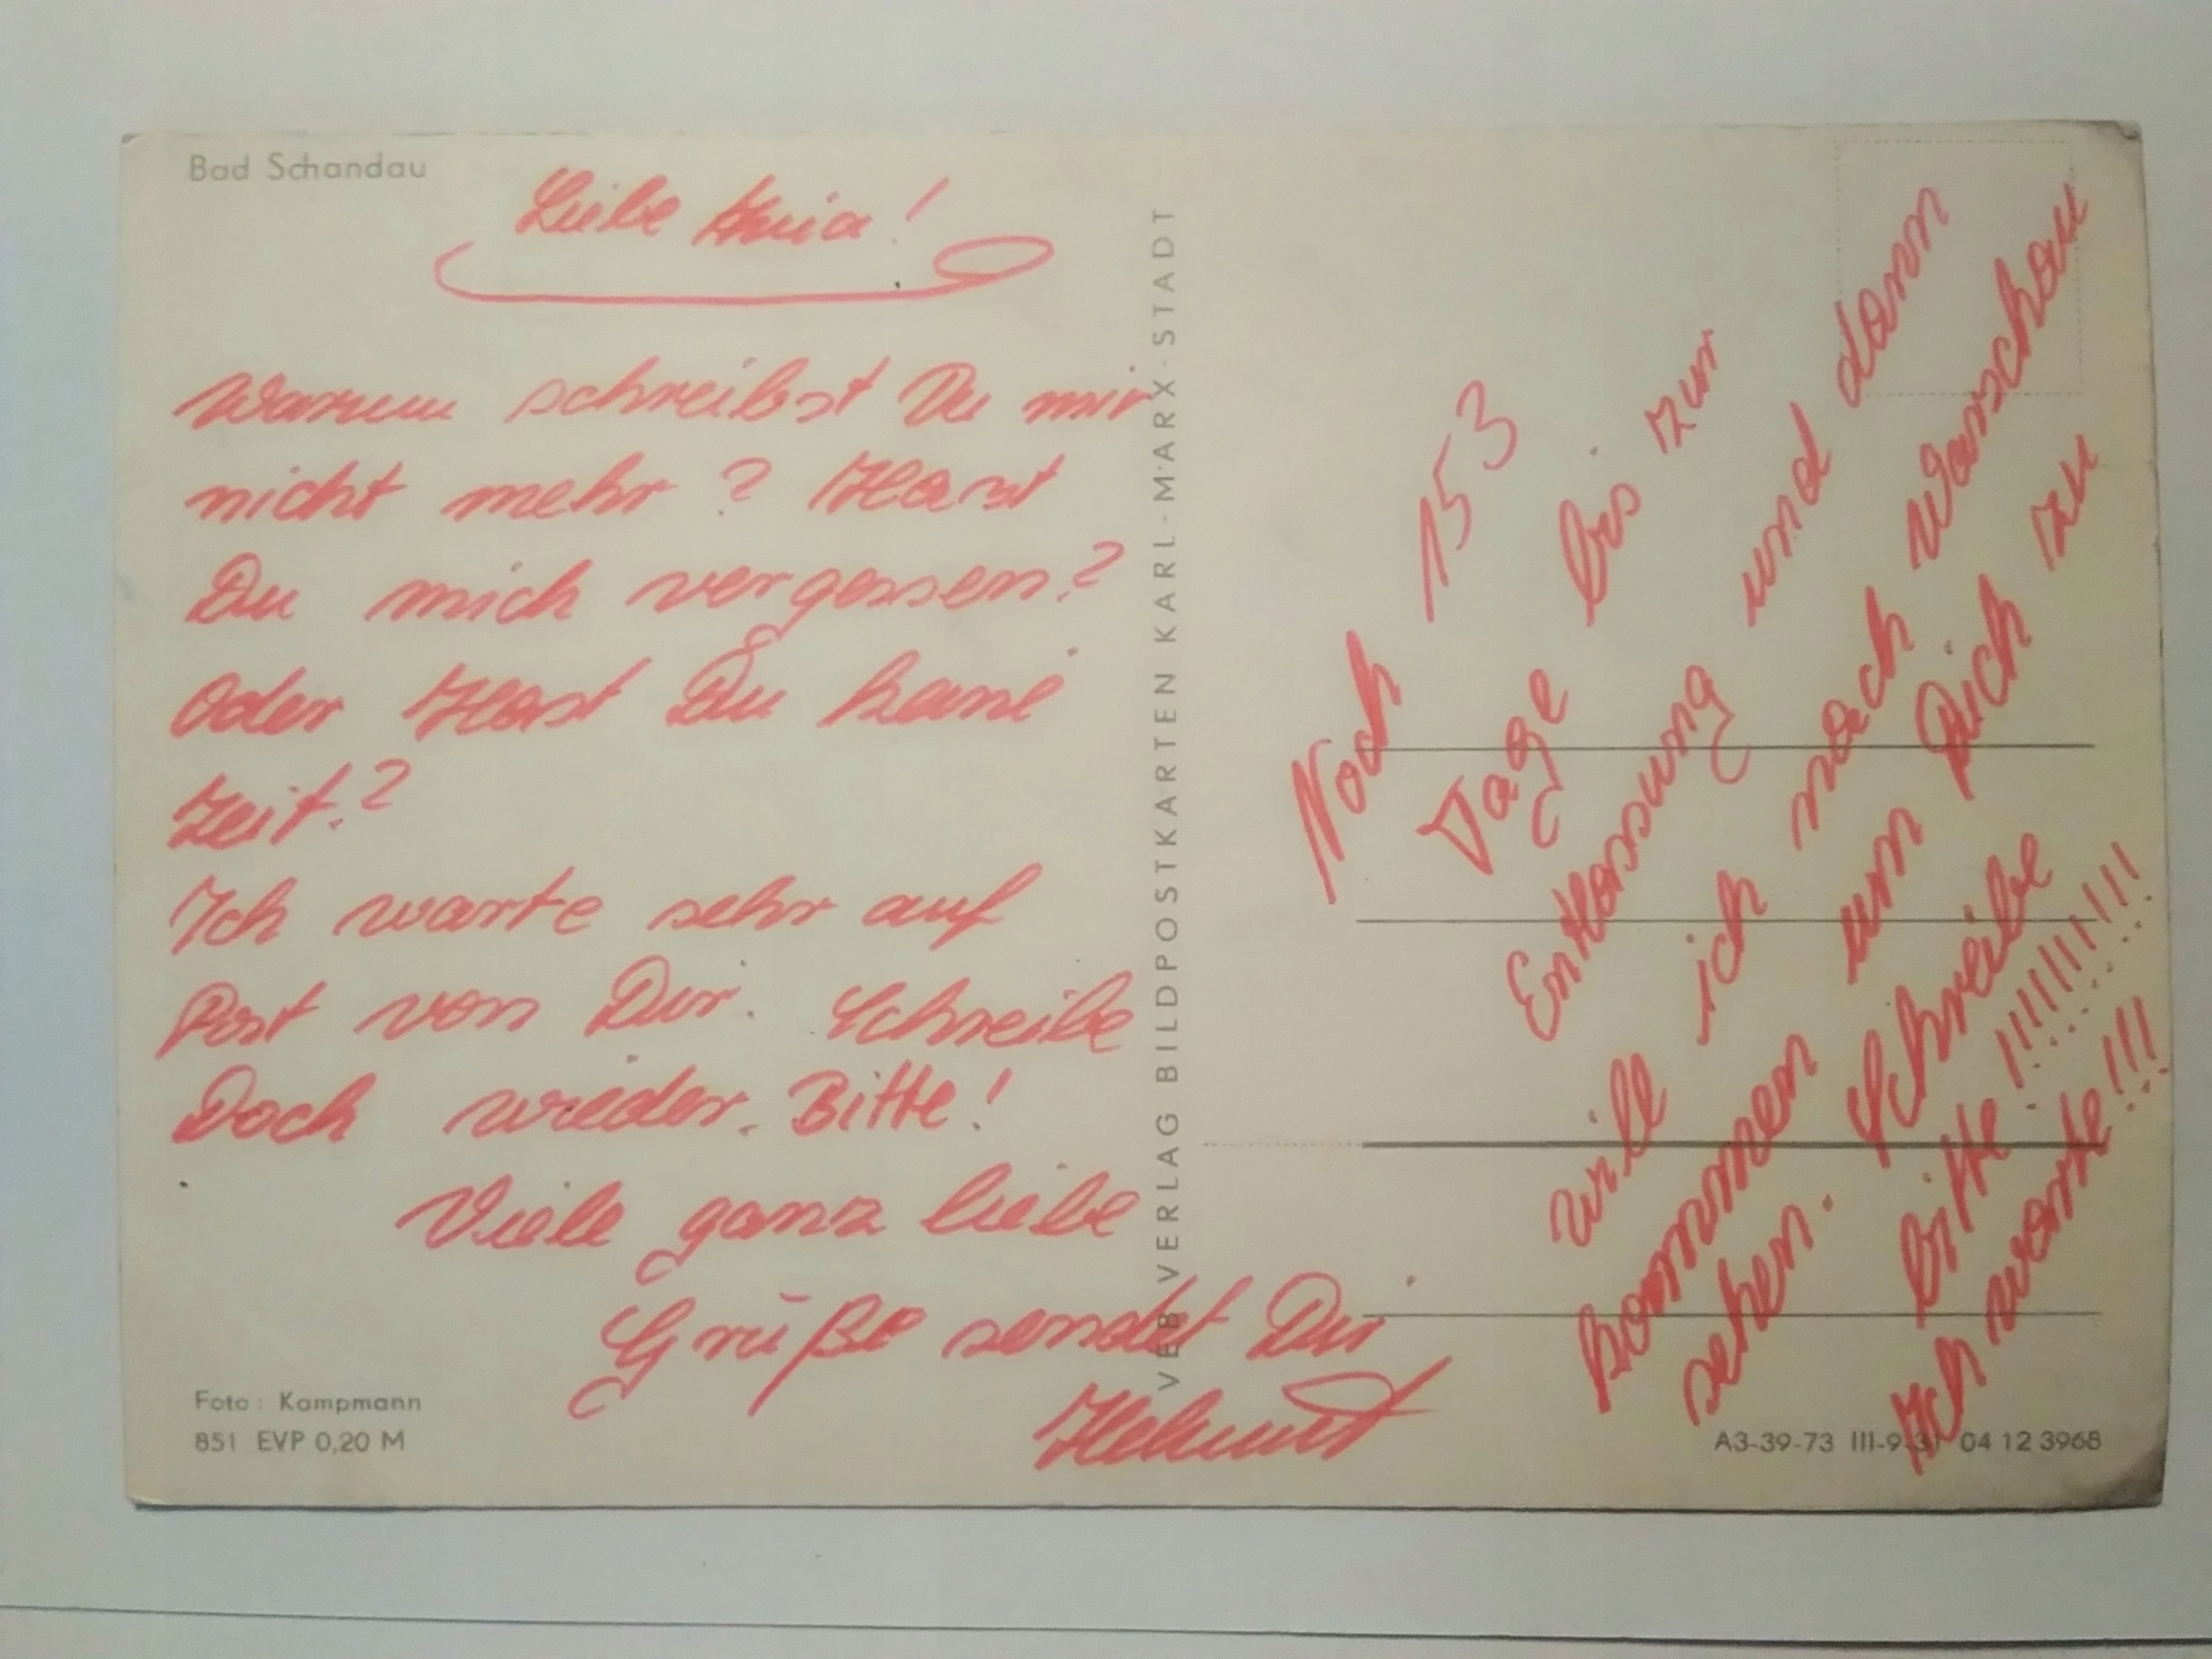 Bad Schandau
Liebe Ania!
Warum schreibst Du mir
nicht mehr? Hast
Du mich vergessen?
Oder Hast Du keine
Zeit?
Ich warte sehr auf
Post von Dir. Schreibe
Doch wieder. Bitte!
Viele ganz liebe
Grüße sendet Dir
Helmut
Foto: Kampmann
851 EVP 0,20 M
VEB VERLAG BILDPOSTKARTEN KARL-MARX-STADT
Noch 153
Tage bis zur
Entlassung und dann
will ich nach Warschau
kommen um Dich zu
sehen. Schreibe
bitte!!!!!!!!!!
Ich warte!!!
A3-39-73 III-9-31 04 12 3968